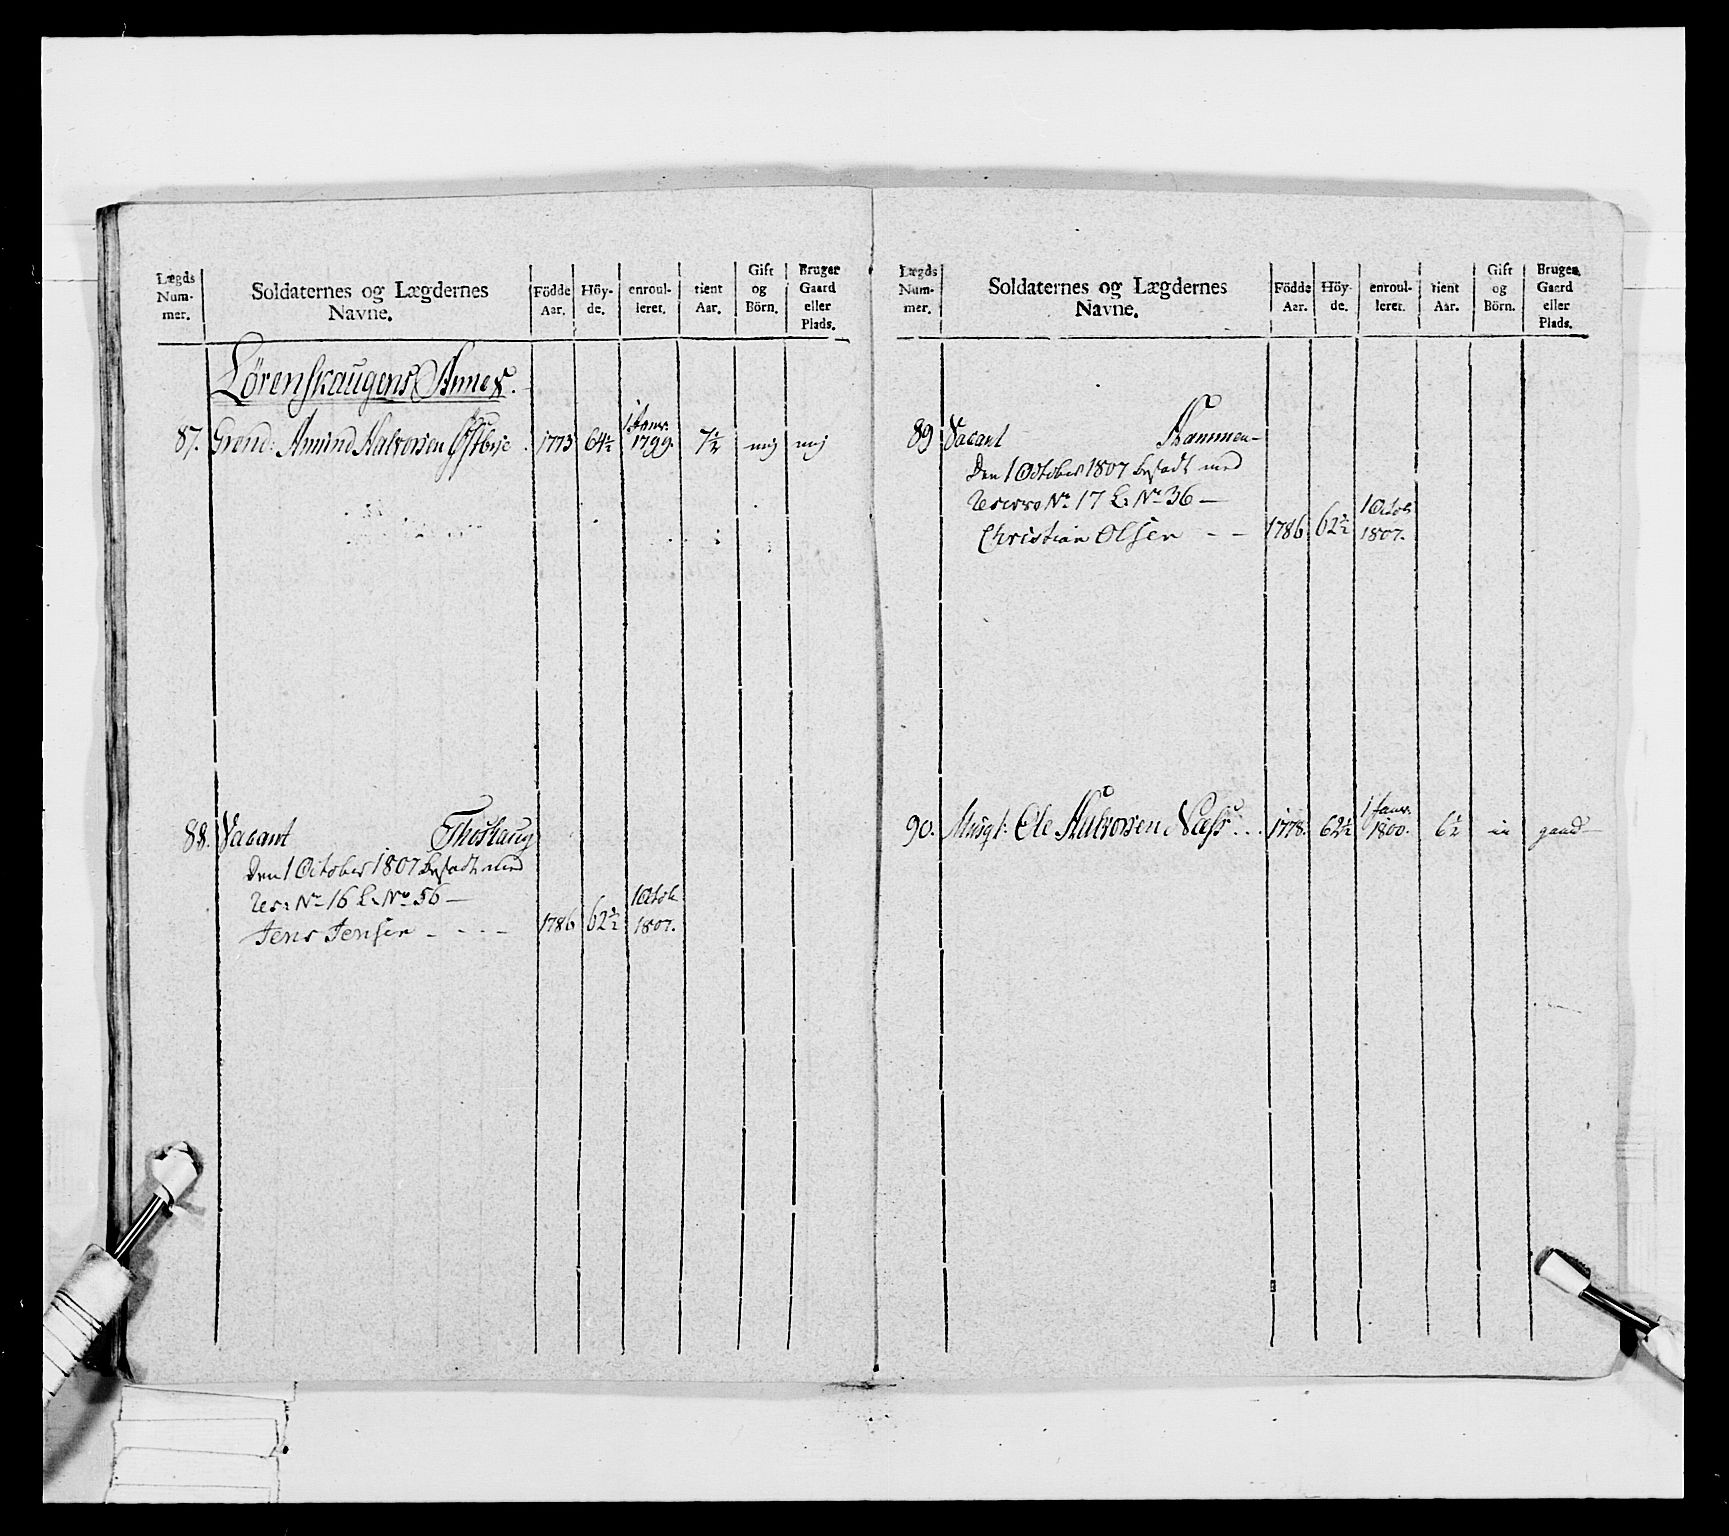 Lægds Num- mer.
Soldaternes og Lægdernes Navne.
Födde Aar.
Höy- de.
enroul- leret.
tient Aar.
Gift og Börn.
Bruger Gaard eller Plads.
Lörenskaugens Annex.
87. Grend: Amund Halvorsen Østbye 1773 64½ 1 Janr. 1799. 7½ nej nej
88. Vacant Thoshaug
Den 1 October 1807 besadt med
Res: No 16 L: No 56 —
Jens Jensen - - - - 1786 62½ 1 Octob: 1807.
Lægds Num- mer.
Soldaternes og Lægdernes Navne.
Födde Aar.
Höy- de.
enroul- leret.
tient Aar.
Gift og Börn.
Bruger Gaard eller Plads.
89 Vacant Hammen-
Den 1 October 1807 besadt med
Reserve No 17 L: No 36 —
Christian Olsen - - 1786 62½ 1 Octob: 1807.
90. Musqt: Ole Halvorsen Næss . . . 1778. 62½ 1 Janr. 1800. 6½ gaard —